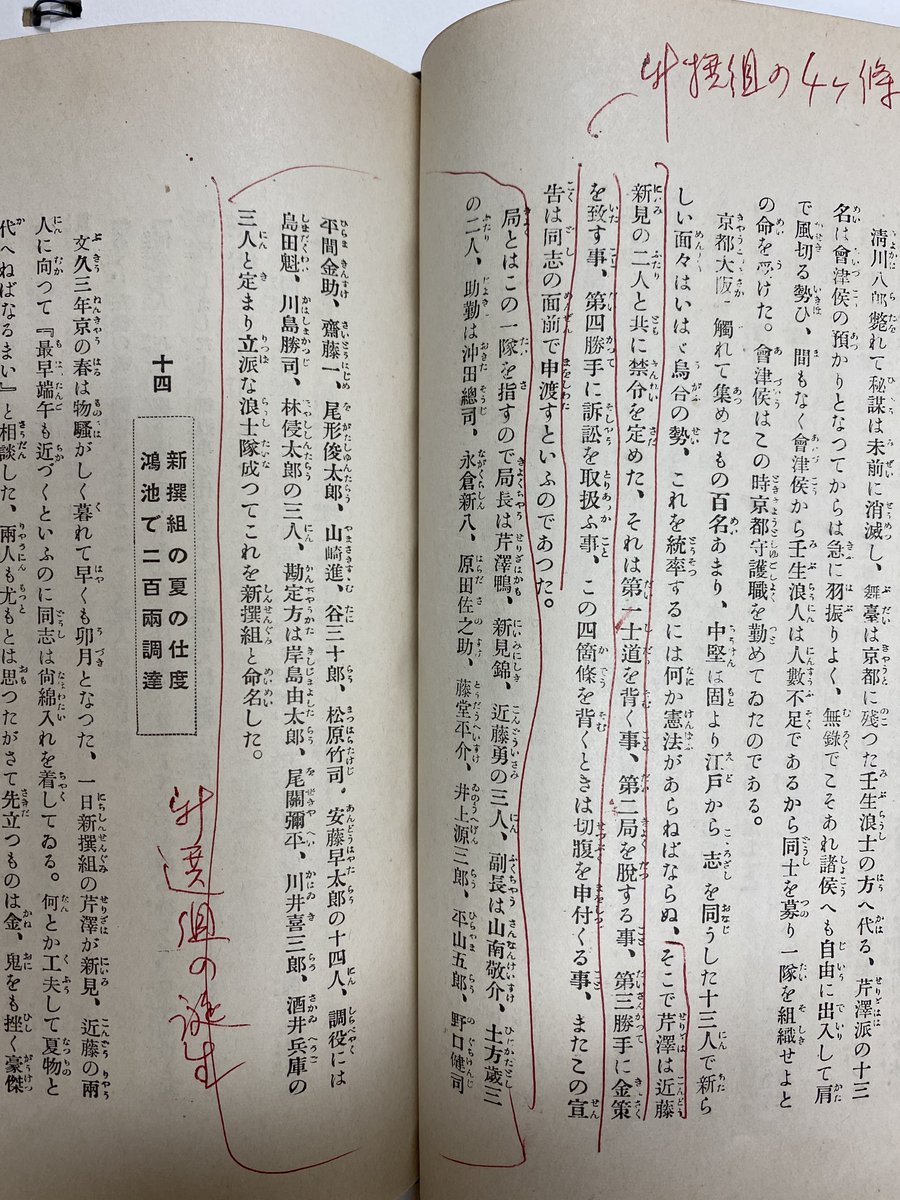 新撰組の4ヶ條
淸川八郎斃れて秘謀は未前に消滅し、舞臺は京都に殘つた壬生浪士の方へ代る、芹澤派の十三
名は會津侯の預かりとなつてからは急に羽振りよく、無錄でこそあれ諸侯へも自由に出入して肩
で風切る勢ひ、間もなく會津侯から壬生浪人は人數不足であるから同士を募り一隊を組織せよと
の命を受けた。會津侯はこの時京都守護職を勤めてゐたのである。
京都大阪に觸れて集めたもの百名あまり、中堅は固より江戸から志を同うした十三人で新ら
しい面々はいはゞ烏合の勢、これを統率するには何か憲法があらねばならぬ、そこで芹澤は近藤
新見の二人と共に禁令を定めた、それは第一士道を背く事、第二局を脱する事、第三勝手に金策
を致す事、第四勝手に訴訟を取扱ふ事、この四箇條を背くときは切腹を申付くる事、またこの宣
告は同志の面前で申渡すといふのであつた。
局とはこの一隊を指すので局長は芹澤鴨、新見錦、近藤勇の三人、副長は山南敬介、土方歲三
の二人、助勤は沖田總司、永倉新八、原田佐之助、藤堂平介、井上源三郎、平山五郎、野口健司
平間金助、齋藤一、尾形俊太郎、山崎進、谷三十郎、松原竹司、安藤早太郎の十四人、調役には
島田魁、川島勝司、林侵太郎の三人、勘定方は岸島由太郎、尾關彌平、川井喜三郎、酒井兵庫の
三人と定まり立派な浪士隊成つてこれを新撰組と命名した。
新撰組の誕生
十四
新撰組の夏の仕度
鴻池で二百兩調達
文久三年京の春は物騷がしく暮れて早くも卯月となつた、一日新撰組の芹澤が新見、近藤の兩
人に向つて『最早端午も近づくといふのに同志は尙綿入れを着してゐる。何とか工夫して夏物と
代へねばなるまい』と相談した、兩人も尤もとは思つたがさて先立つものは金、鬼をも挫く豪傑